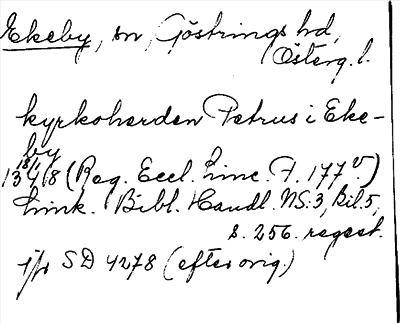 Ekeby, sn, Göstrings hd,
Österg. l.
kyrkoherden Petrus i Eke-
by
13 18/4 48 (Reg. Eccl. Linc. F. 177 v.)
Link. Bibl. Handl. NS: 3, Bil. 5,
s. 256. regest.
jfr SD 4278 (efter orig.)